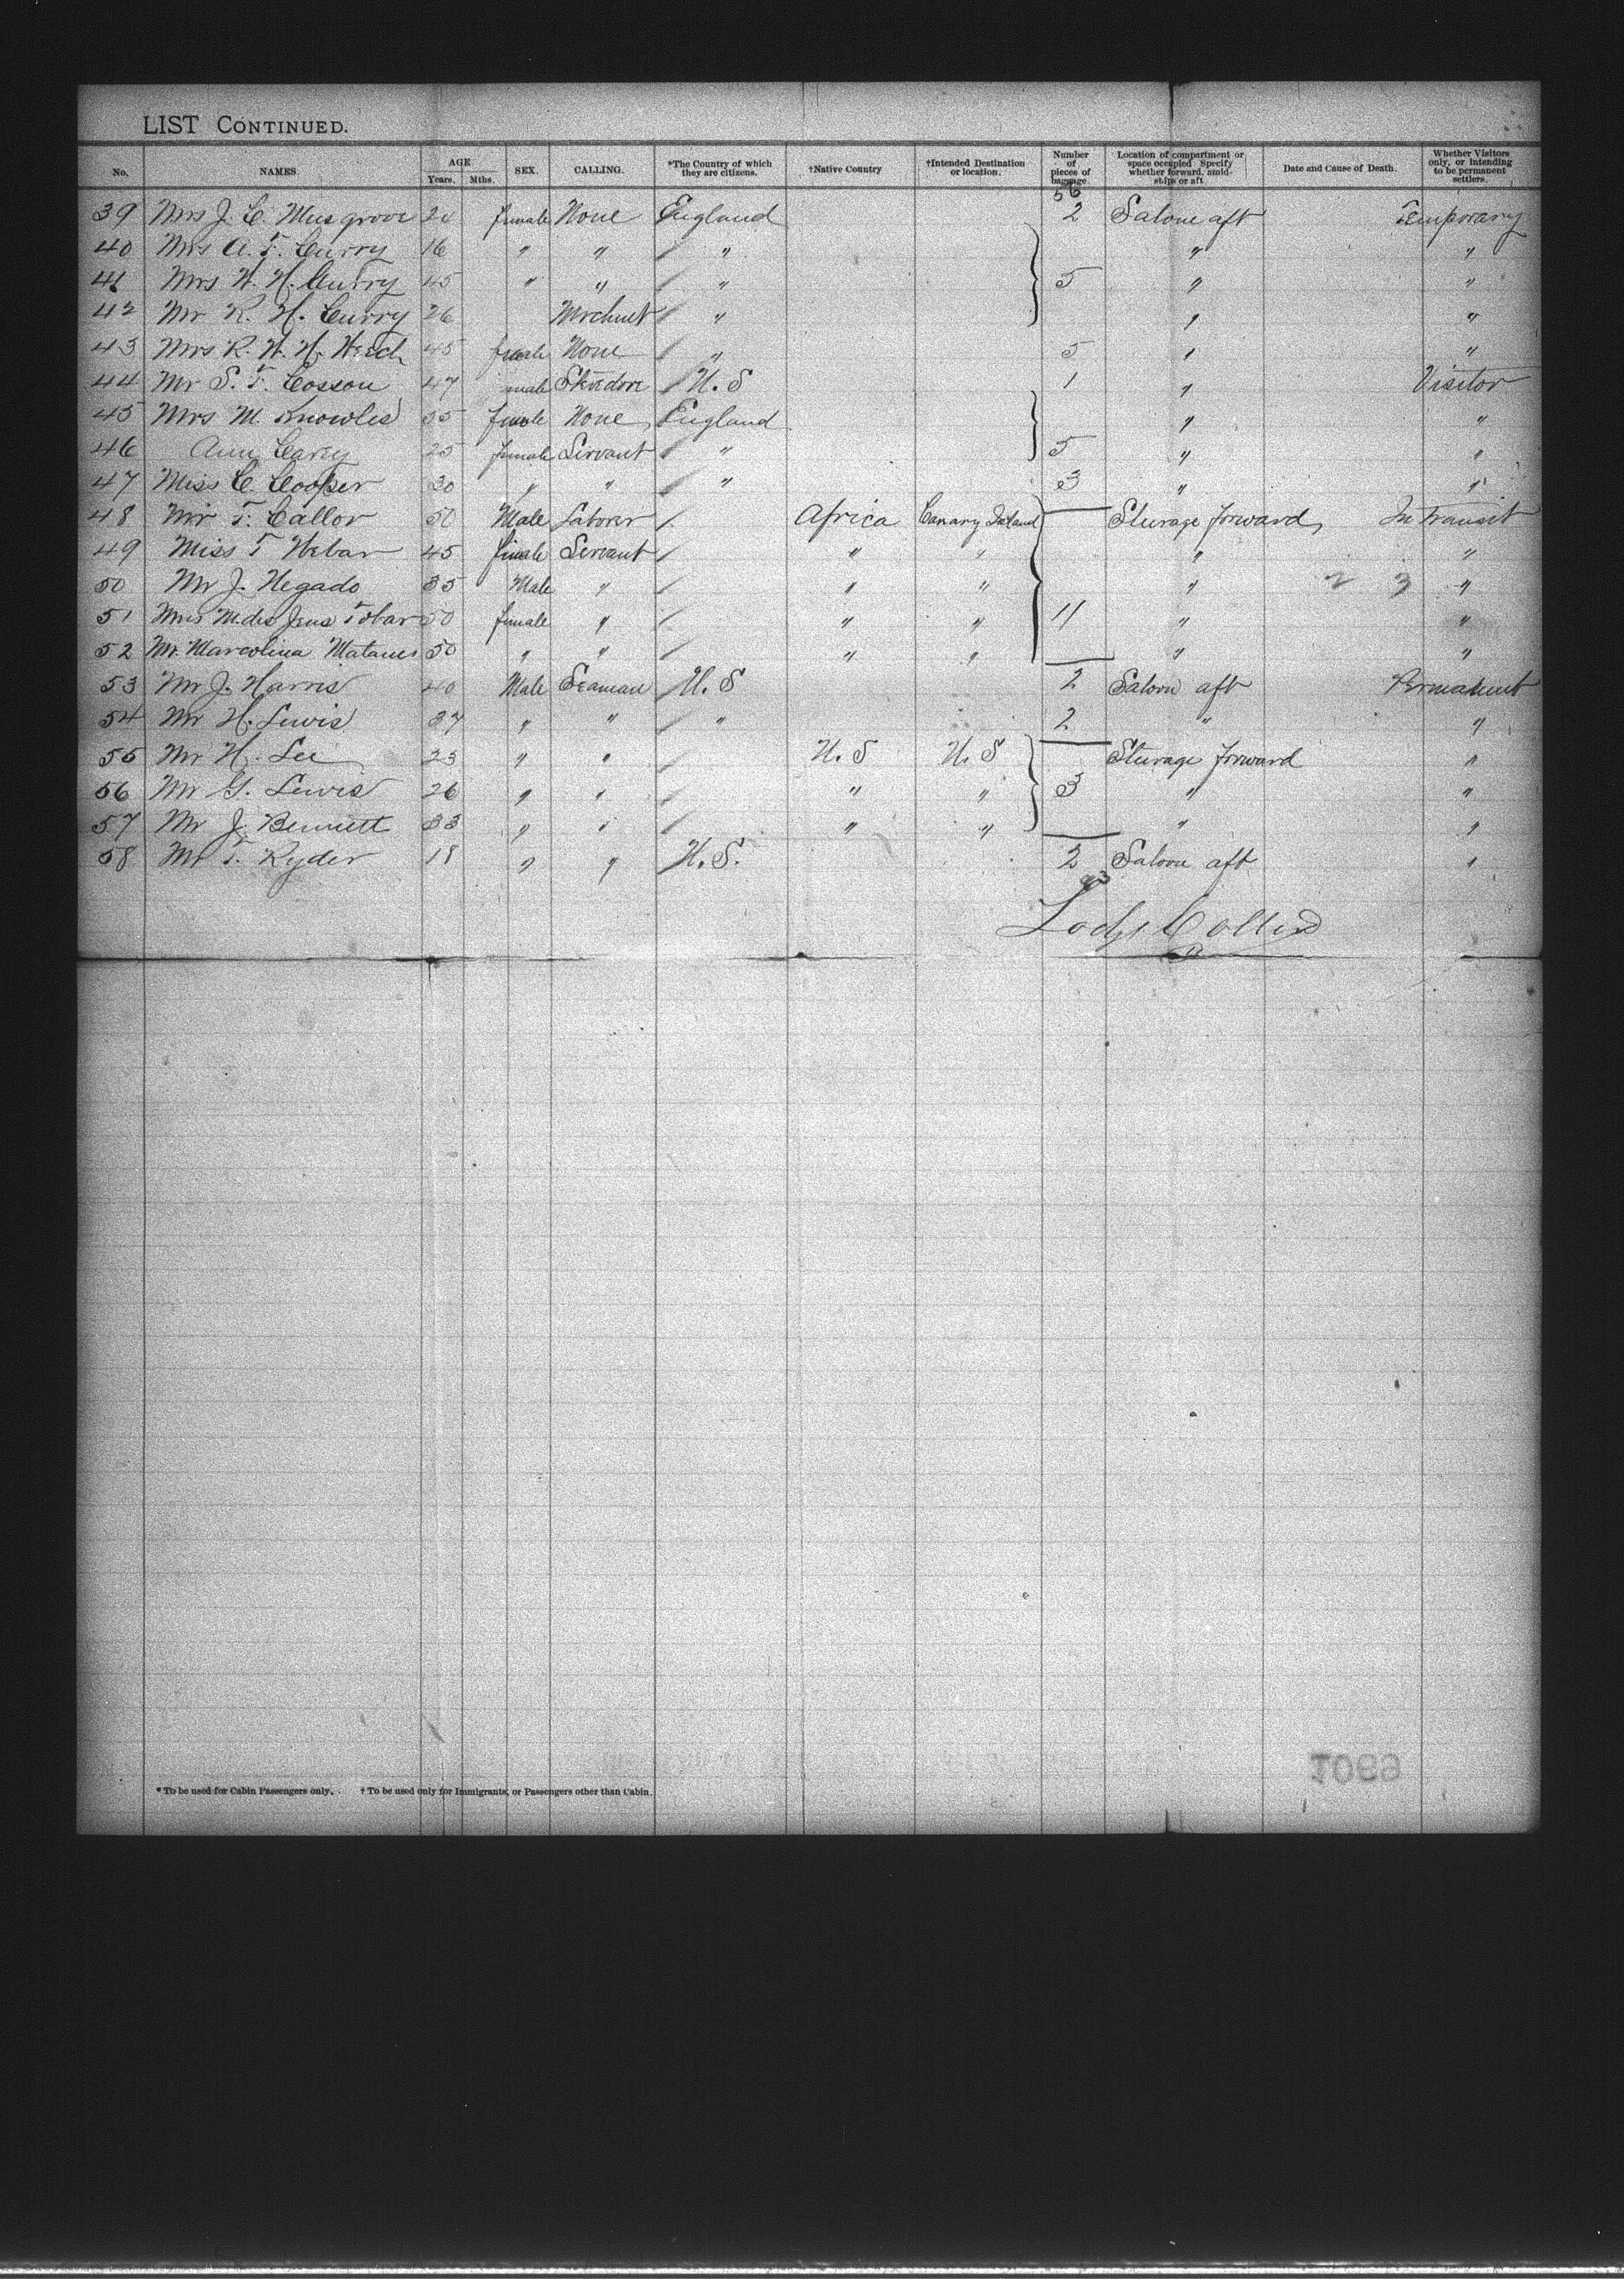 LIST CONTINUED.
No. NAMES AGE Years. Mths. SEX. CALLING. *The Country of which they are citizens. †Native Country †Intended Destination or location. Number of pieces of baggage. Location of compartment or space occupied Specify whether forward, amidships or aft Date and Cause of Death. Whether Visitors only, or intending to be permanent settlers.
56
39 Mrs J. C. Musgrove 24 female None England 2 Saloon aft Temporary
40 Mrs A. T. Curry 16 " " " " "
41 Mrs W. H. Curry 45 " " " 5 " "
42 Mr R. H. Curry 26 Merchnt " " "
43 Mrs R. W. H. 45 female None " 5 " "
44 Mr S. T. Cosson 47 male Stevedore U.S 1 " Visitor
45 Mrs M. Knowles 35 female None England " "
46 Ann Carey 25 female Servant " 5 " "
47 Miss C Cooper 30 " " " 3 " "
48 Mr T. Callor 50 Male Laborer Africa Canary Island Sturage forward In Transit
49 Miss T Webar 45 female Servant " " " "
50 Mr J. Hegado 35 Male " " " " 2 3 "
51 Mrs M.des Jens Tobar 50 female " " " 11 " "
52 Mr. Marcolina Matanes 50 " " " " " "
53 Mr J. Harris 40 Male Seaman U.S 2 Saloon aft Permanent
54 Mr H. Lewis 37 " " " 2 " "
55 Mr H. Lee 23 " " U.S U.S Sturage forward "
56 Mr G. Lewis 26 " " " " 3 " "
57 Mr J. Bennett 33 " " " " " "
58 Mr T. Ryder 18 " " U.S. 2 Saloon aft "
93
*To be used for Cabin Passengers only. †To be used only for Immigrants, or Passengers other than Cabin.